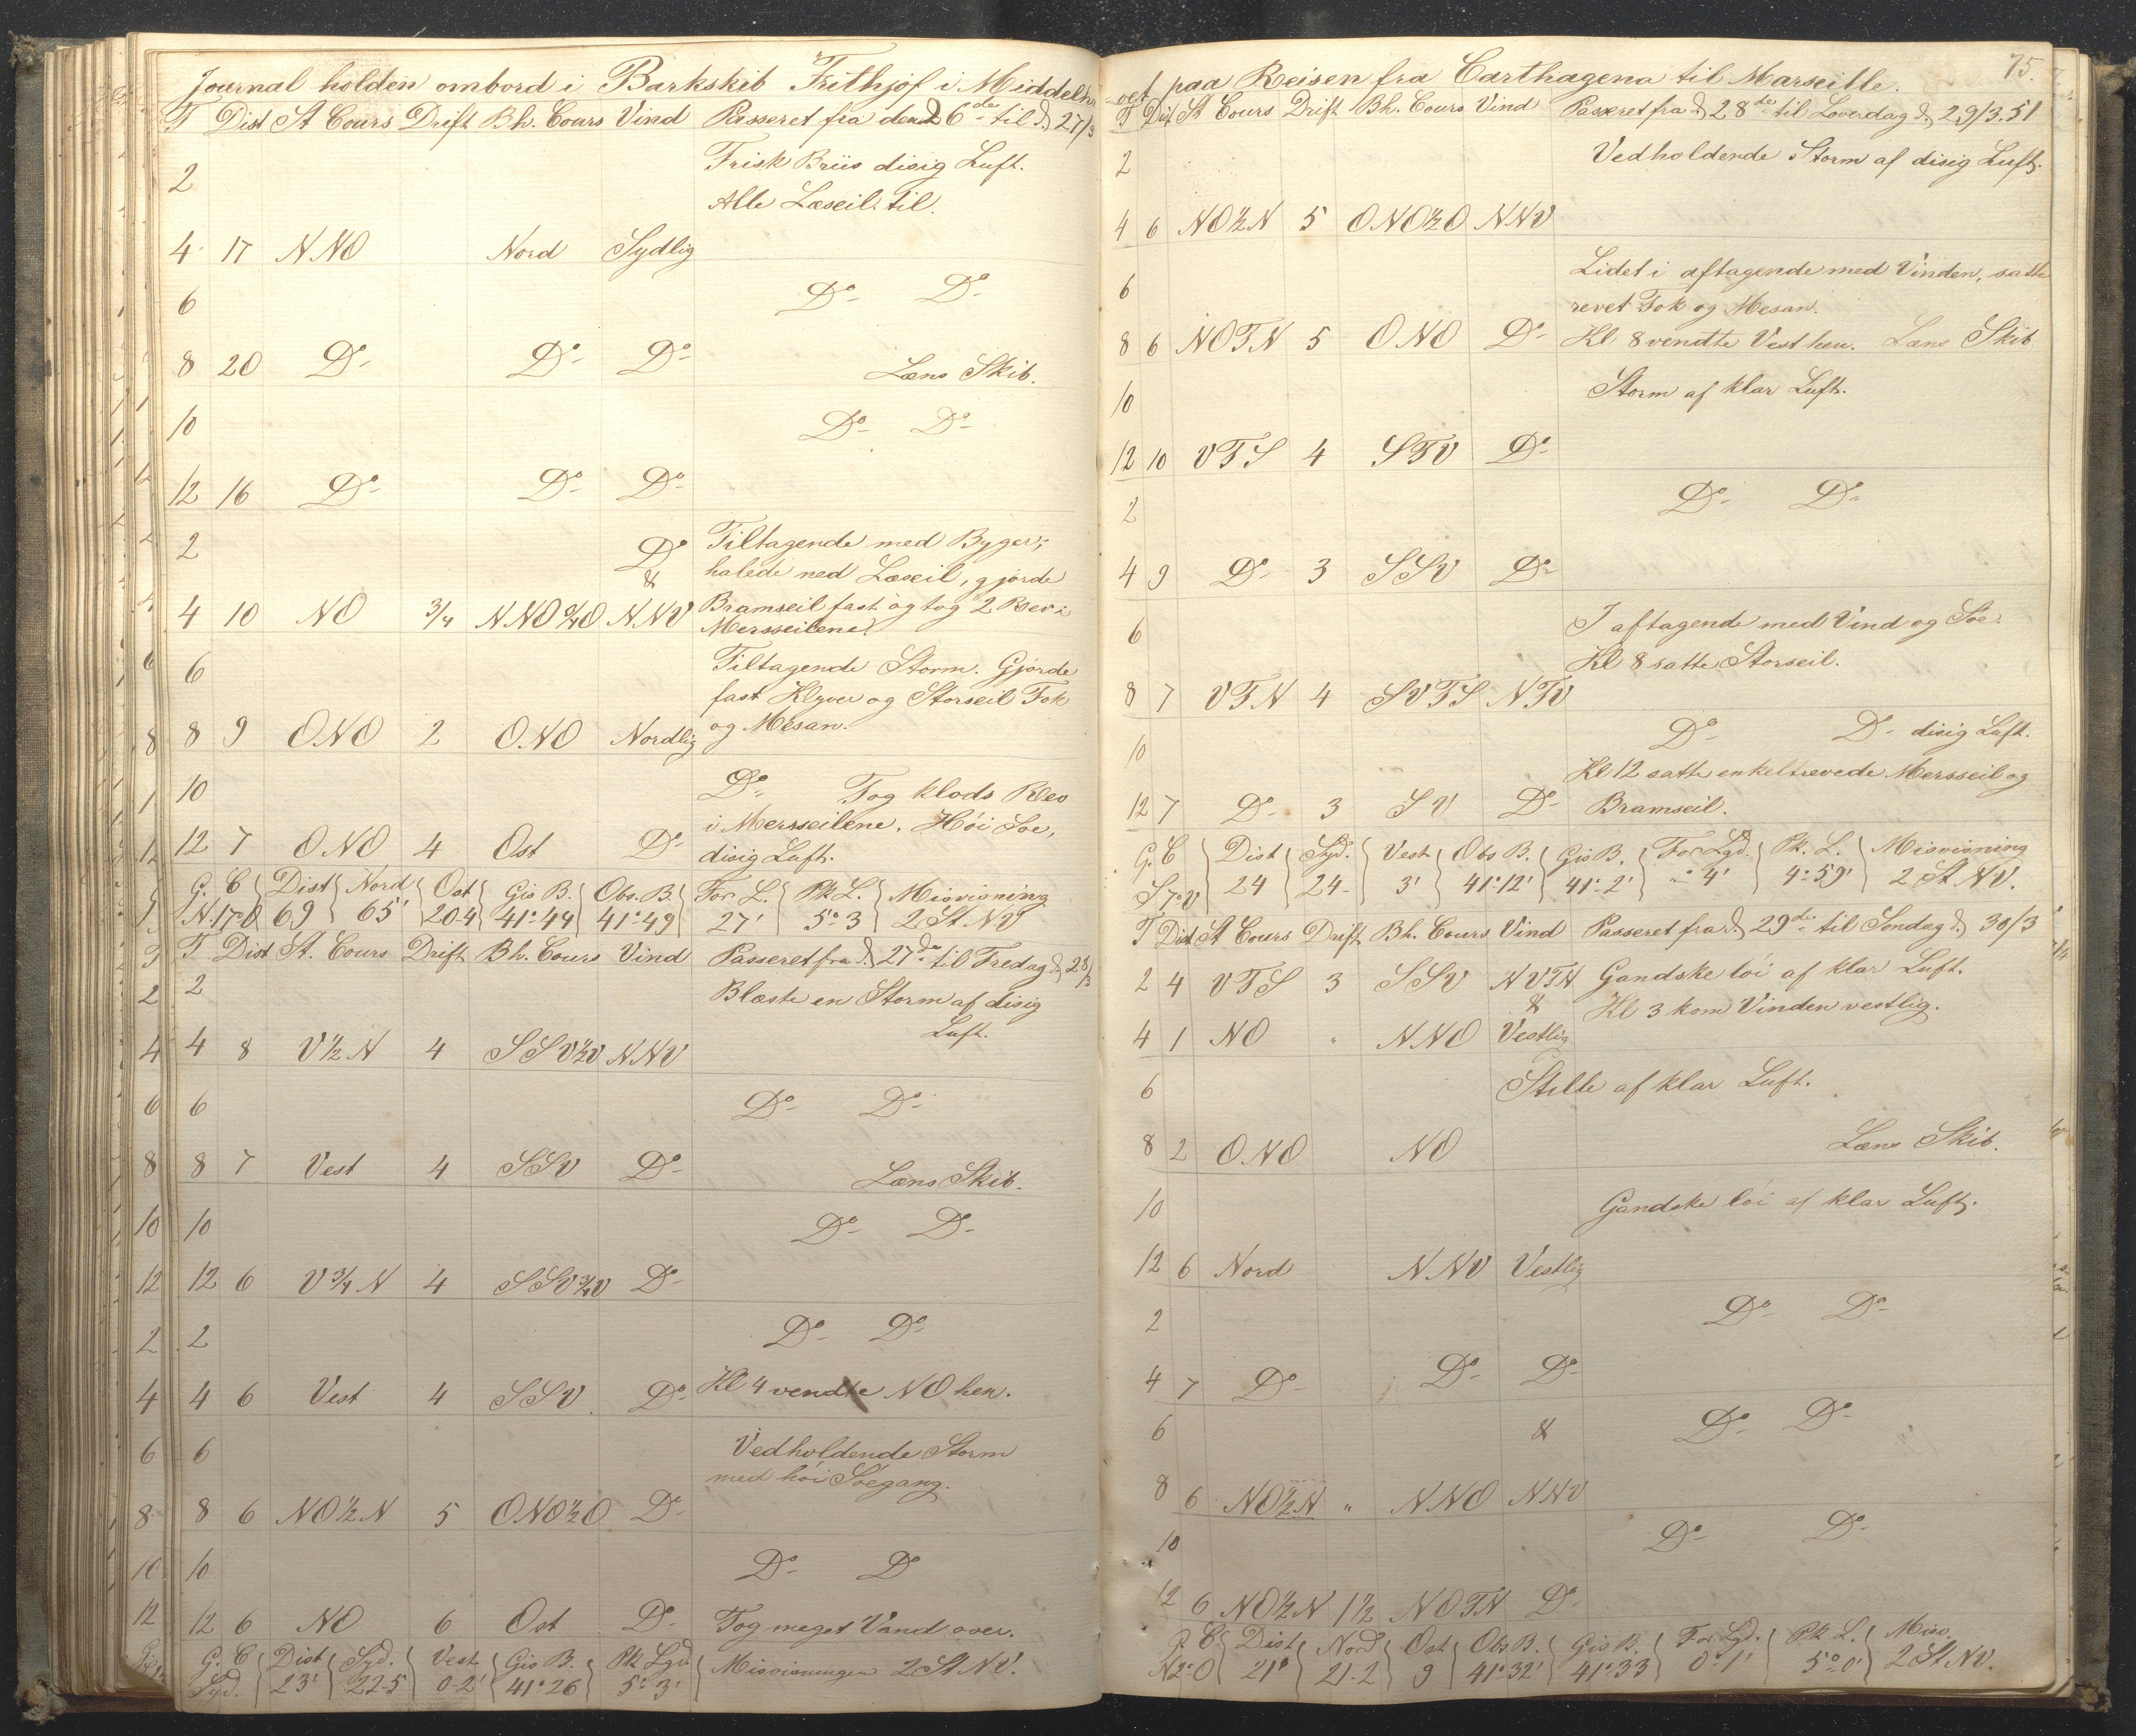 Journal holden ombord i Barkskib Frithjof i Middelha
T Dist St Cours Drift Bh. Cours Vind Passeret fra den 26de til d. 27/3
Frisk Briis disig Luft.
2
Alle Læseil til.
4 17 NNO Nord Sydlig
6 Do Do
8 20 Do Do Do Læns Skib.
10 Do Do
12 16 Do Do Do
2 Do Tiltagende med Byger;
& halede ned Læseil, gjorde
4 10 NO 3/4 NNO 3/4 O NNV Bramseil fast og tog 2 Rev i
Mersseilene.
6 Tiltagende Storm. Gjorde
fast Klyver og Storseil Fok
8 9 ONO 2 ONO Nordlig og Mesan.
10 Do Tog klods Rev
i Mersseilene. Höi Söe,
12 7 ONO 4 Ost Do disig Luft.
G. C Dist Nord Ost Gis B. Obs. B. For L. Pk L. Misvisning
N. 17° O 69 65' 204 41°44 41°49 27' 5°3 2 St NV
T Dist St. Cours Drift Bh. Cours Vind Passeret fra d. 27de til Fredag d. 28/3
2 Blæste en Storm af disig
Luft.
4 8 V 1/2 N 4 SSV 1/2 V NNV
6 Do Do
8 7 Vest 4 SSV Do Læns Skib.
10 Do Do
12 6 V 3/4 N 4 SSV 3/4 V Do
2 Do Do
4 6 Vest 4 SSV Do Kl 4 vendte NO hen.
6 Vedholdende Storm
med höi Söegang.
8 6 NO 1/2 N 5 ONO 1/2 O Do
10 Do Do
12 6 NO 6 Ost Do Tog meget Vand over.
G. C Dist Syd. Vest Gis B. Pk Lgd. Misvisningen 2 St NV.
Syd. 23' 22-5 0-2' 41°26 5°3'
75.
vet paa Reisen fra Carthagena til Marseille.
T Dist St Cours Drift Bh. Cours Vind Passeret fra d. 28de til Loverdag d. 29/3.51
2 Vedholdende Storm af disig Luft.
4 6 NO 1/2 N 5 ONO 1/2 O NNV
6 Lidet i aftagende med Vinden, satte
revet Fok og Mesan.
8 6 NOTN 5 ONO Do Kl 8 vendte Vest hen. Læns Skib
10 Storm af klar Luft.
12 10 VTS 4 STV Do
2 Do Do
4 9 Do 3 SSV Do
6 I aftagende med Vind og Söe.
Kl 8 satte Storseil.
8 7 VTN 4 SVTS NTV
10 Do Do disig Luft.
Kl 12 satte enkeltrevede Mersseil og
12 7 Do 3 SV Do Bramseil.
G. C Dist Syd. Vest Obs B. Gis B. For Lgd. Pk. L. Misvisning
S 7° V 24 24- 3' 41°12' 41°2' "° 4' 4°59' 2 St NV.
T Dist St Cours Drift Bh. Cours Vind Passeret fra d. 29de til Söndag d. 30/3
2 4 VTS 3 SSV NVTN Gandske löi af klar Luft.
& Kl 3 kom Vinden vestlig.
4 1 NO " NNO Vestlig
6 Stille af klar Luft.
8 2 ONO NO Læns Skib.
10 Gandske löi af klar Luft.
12 6 Nord NNV Vestlig
2 Do Do
4 7 Do Do Do
6 & Do Do
8 6 NO 1/2 N " NNO NNV
10 Do Do
12 6 NO 1/2 N 1 1/2 NOTN Do
G. C. Dist Nord Ost Obs B. Gis B. For Lgd. Pk L. Misv.
N 2° O 21° 21.2 9 41°32' 41°33 0°1' 5°0' 2 St NV.